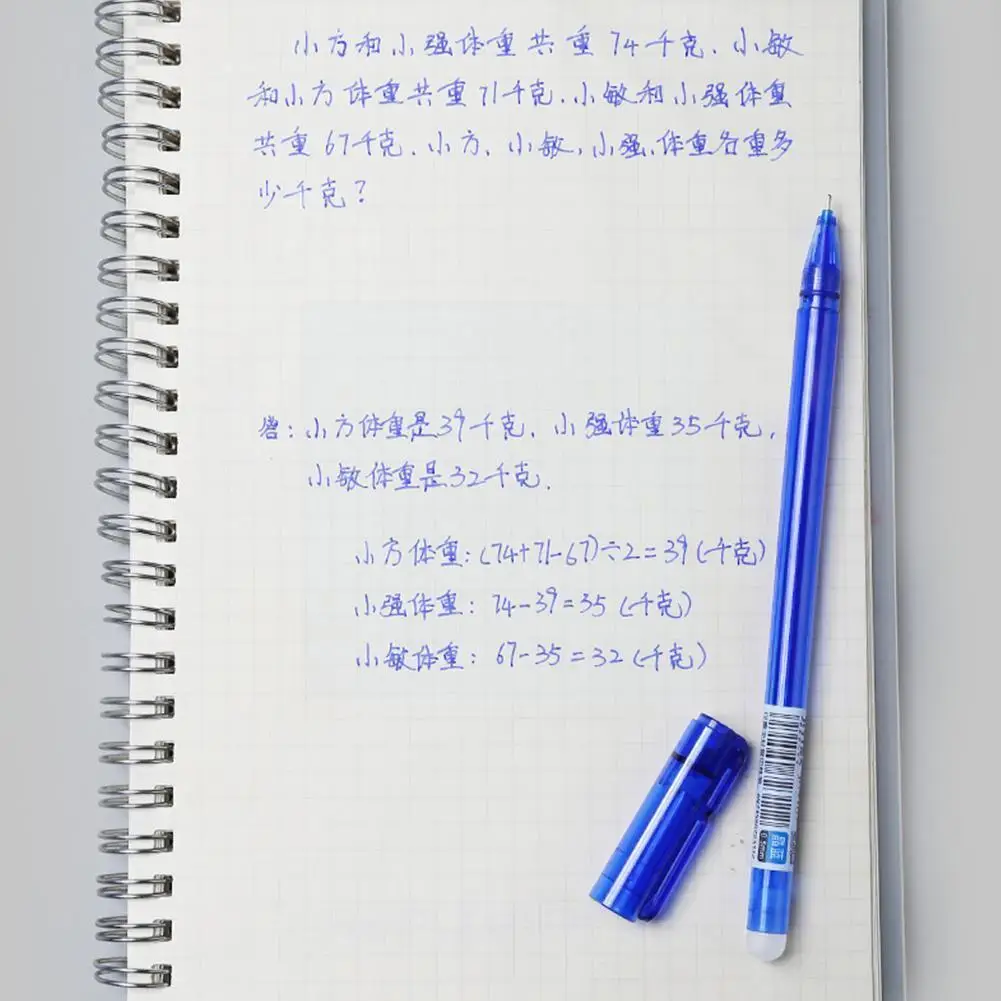 小方和小强体重共重74千克.小敏
和小方体重共重71千克.小敏和小强体重
共重67千克.小方、小敏,小强,体重各重多
少千克?
答:小方体重是39千克、小强体重35千克,
小敏体重是32千克.
小方体重:(74+71-67)÷2=39(千克)
小强体重:74-39=35(千克)
小敏体重:67-35=32(千克)
晶蓝
0.5mm